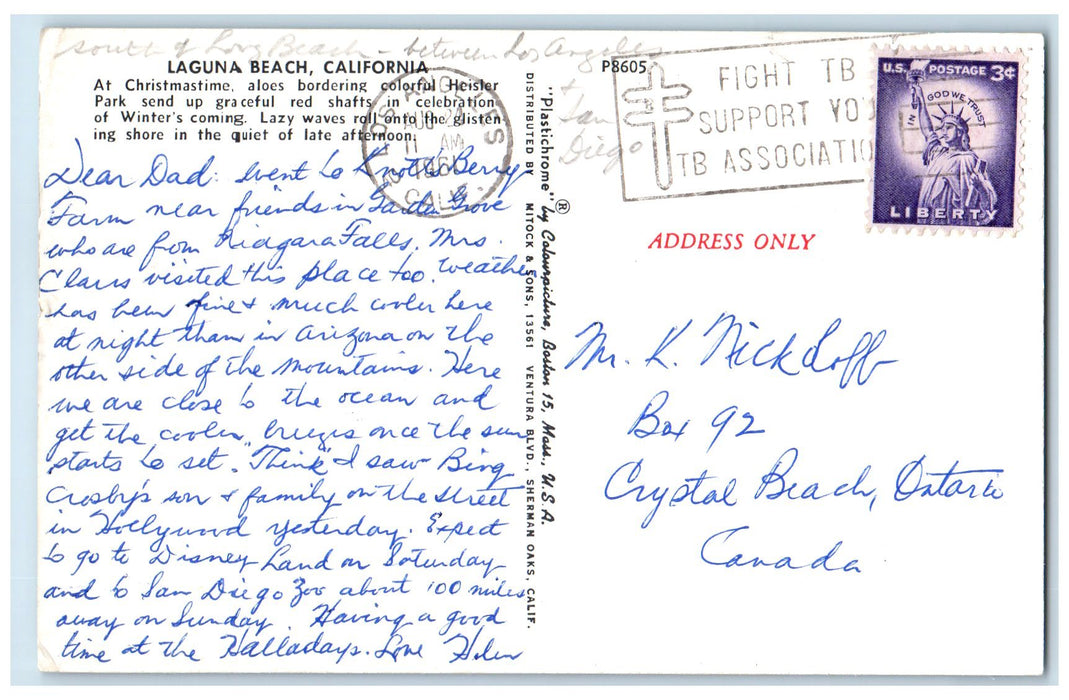 south of Long Beach - between Los Angeles
+ San
Diego
LAGUNA BEACH, CALIFORNIA
At Christmastime, aloes bordering colorful Heisler
Park send up graceful red shafts in celebration
of Winter's coming. Lazy waves roll onto the glisten-
ing shore in the quiet of late afternoon.
Dear Dad: Went to Knotts Berry
Farm near friends in Garden Grove
who are from Niagara Falls. Mrs.
Claus visited this place too. Weather
has been fine & much cooler here
at night than in Arizona on the
other side of the mountains. Here
we are close to the ocean and
get the cooler breezes once the sun
starts to set. "Think" I saw Bing
Crosby's son & family on the street
in Hollywood yesterday. Expect
to go to Disney Land on Saturday
and to San Diego Zoo about 100 miles
away on Sunday. Having a good
time at the Halladays. Love Helen
LOS ANGELES
AUG 24
11 AM
CALIF.
DISTRIBUTED BY MITOCK & SONS, 13561 VENTURA BLVD., SHERMAN OAKS, CALIF.
"Plastichrome" ® by Colourpicture, Boston 15, Mass., U.S.A.
P8605
FIGHT TB
SUPPORT YOU
TB ASSOCIATIO
U.S. POSTAGE 3¢
IN GOD WE TRUST
LIBERTY
ADDRESS ONLY
Mr. K. Nickloff
Box 92
Crystal Beach, Ontario
Canada